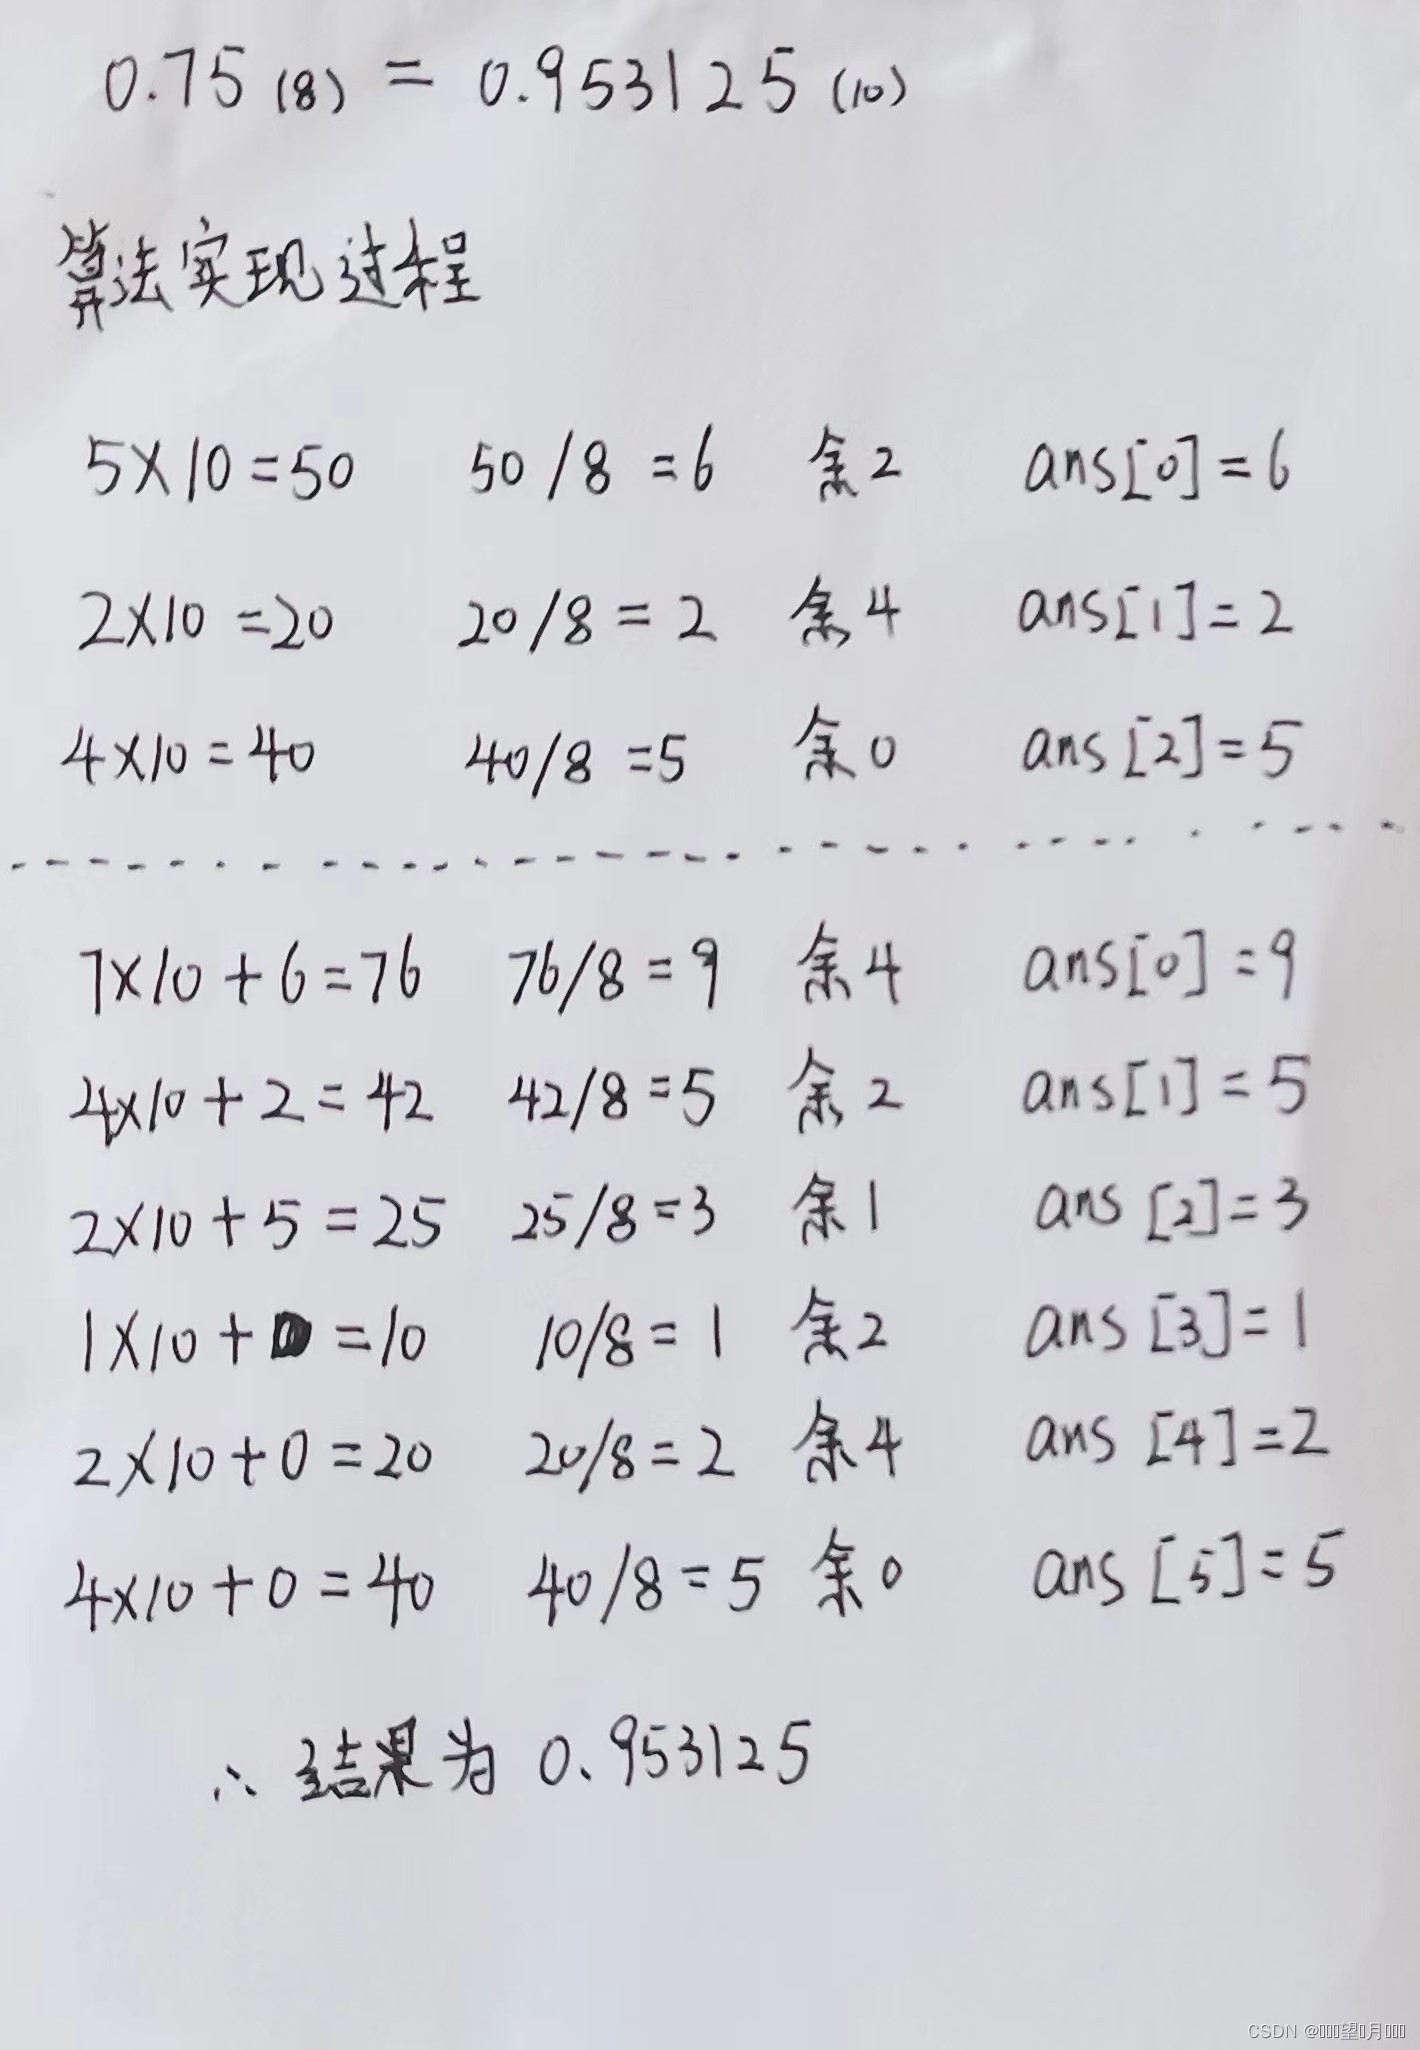 0.75(8) = 0.953125(10)
算法实现过程
5×10=50 50/8=6 余2 ans[0]=6
2×10=20 20/8=2 余4 ans[1]=2
4×10=40 40/8=5 余0 ans[2]=5
7×10+6=76 76/8=9 余4 ans[0]=9
4×10+2=42 42/8=5 余2 ans[1]=5
2×10+5=25 25/8=3 余1 ans[2]=3
1×10+0=10 10/8=1 余2 ans[3]=1
2×10+0=20 20/8=2 余4 ans[4]=2
4×10+0=40 40/8=5 余0 ans[5]=5
∴ 结果为 0.953125
CSDN @望月